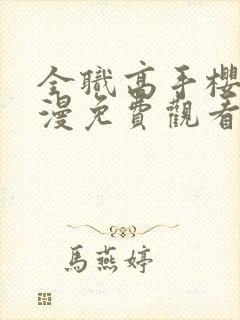 全職高手櫻
漫免費觀看
馬燕婷